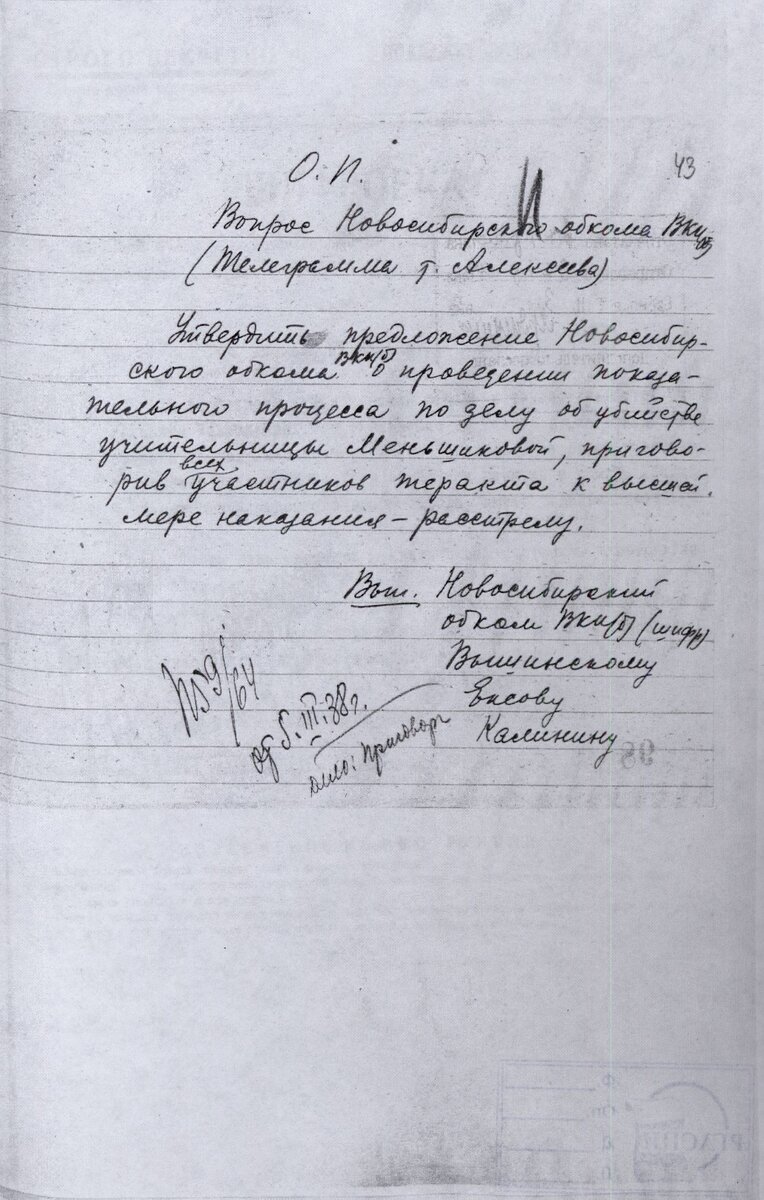 43
О. П.
Вопрос Новосибирского обкома ВКП(б)
(Телеграмма т. Алексеева)
Утвердить предложение Новосибир-
ского обкома ВКП(б) о проведении показа-
тельного процесса по делу об убийстве
учительницы Меньшиковой, пригово-
рив всех участников теракта к высшей
мере наказания – расстрелу.
Вып. Новосибирский
обком ВКП(б) (шифр)
Вышинскому
Ежову
Калинину
П59/64
от 5.III.38г.
Приговор